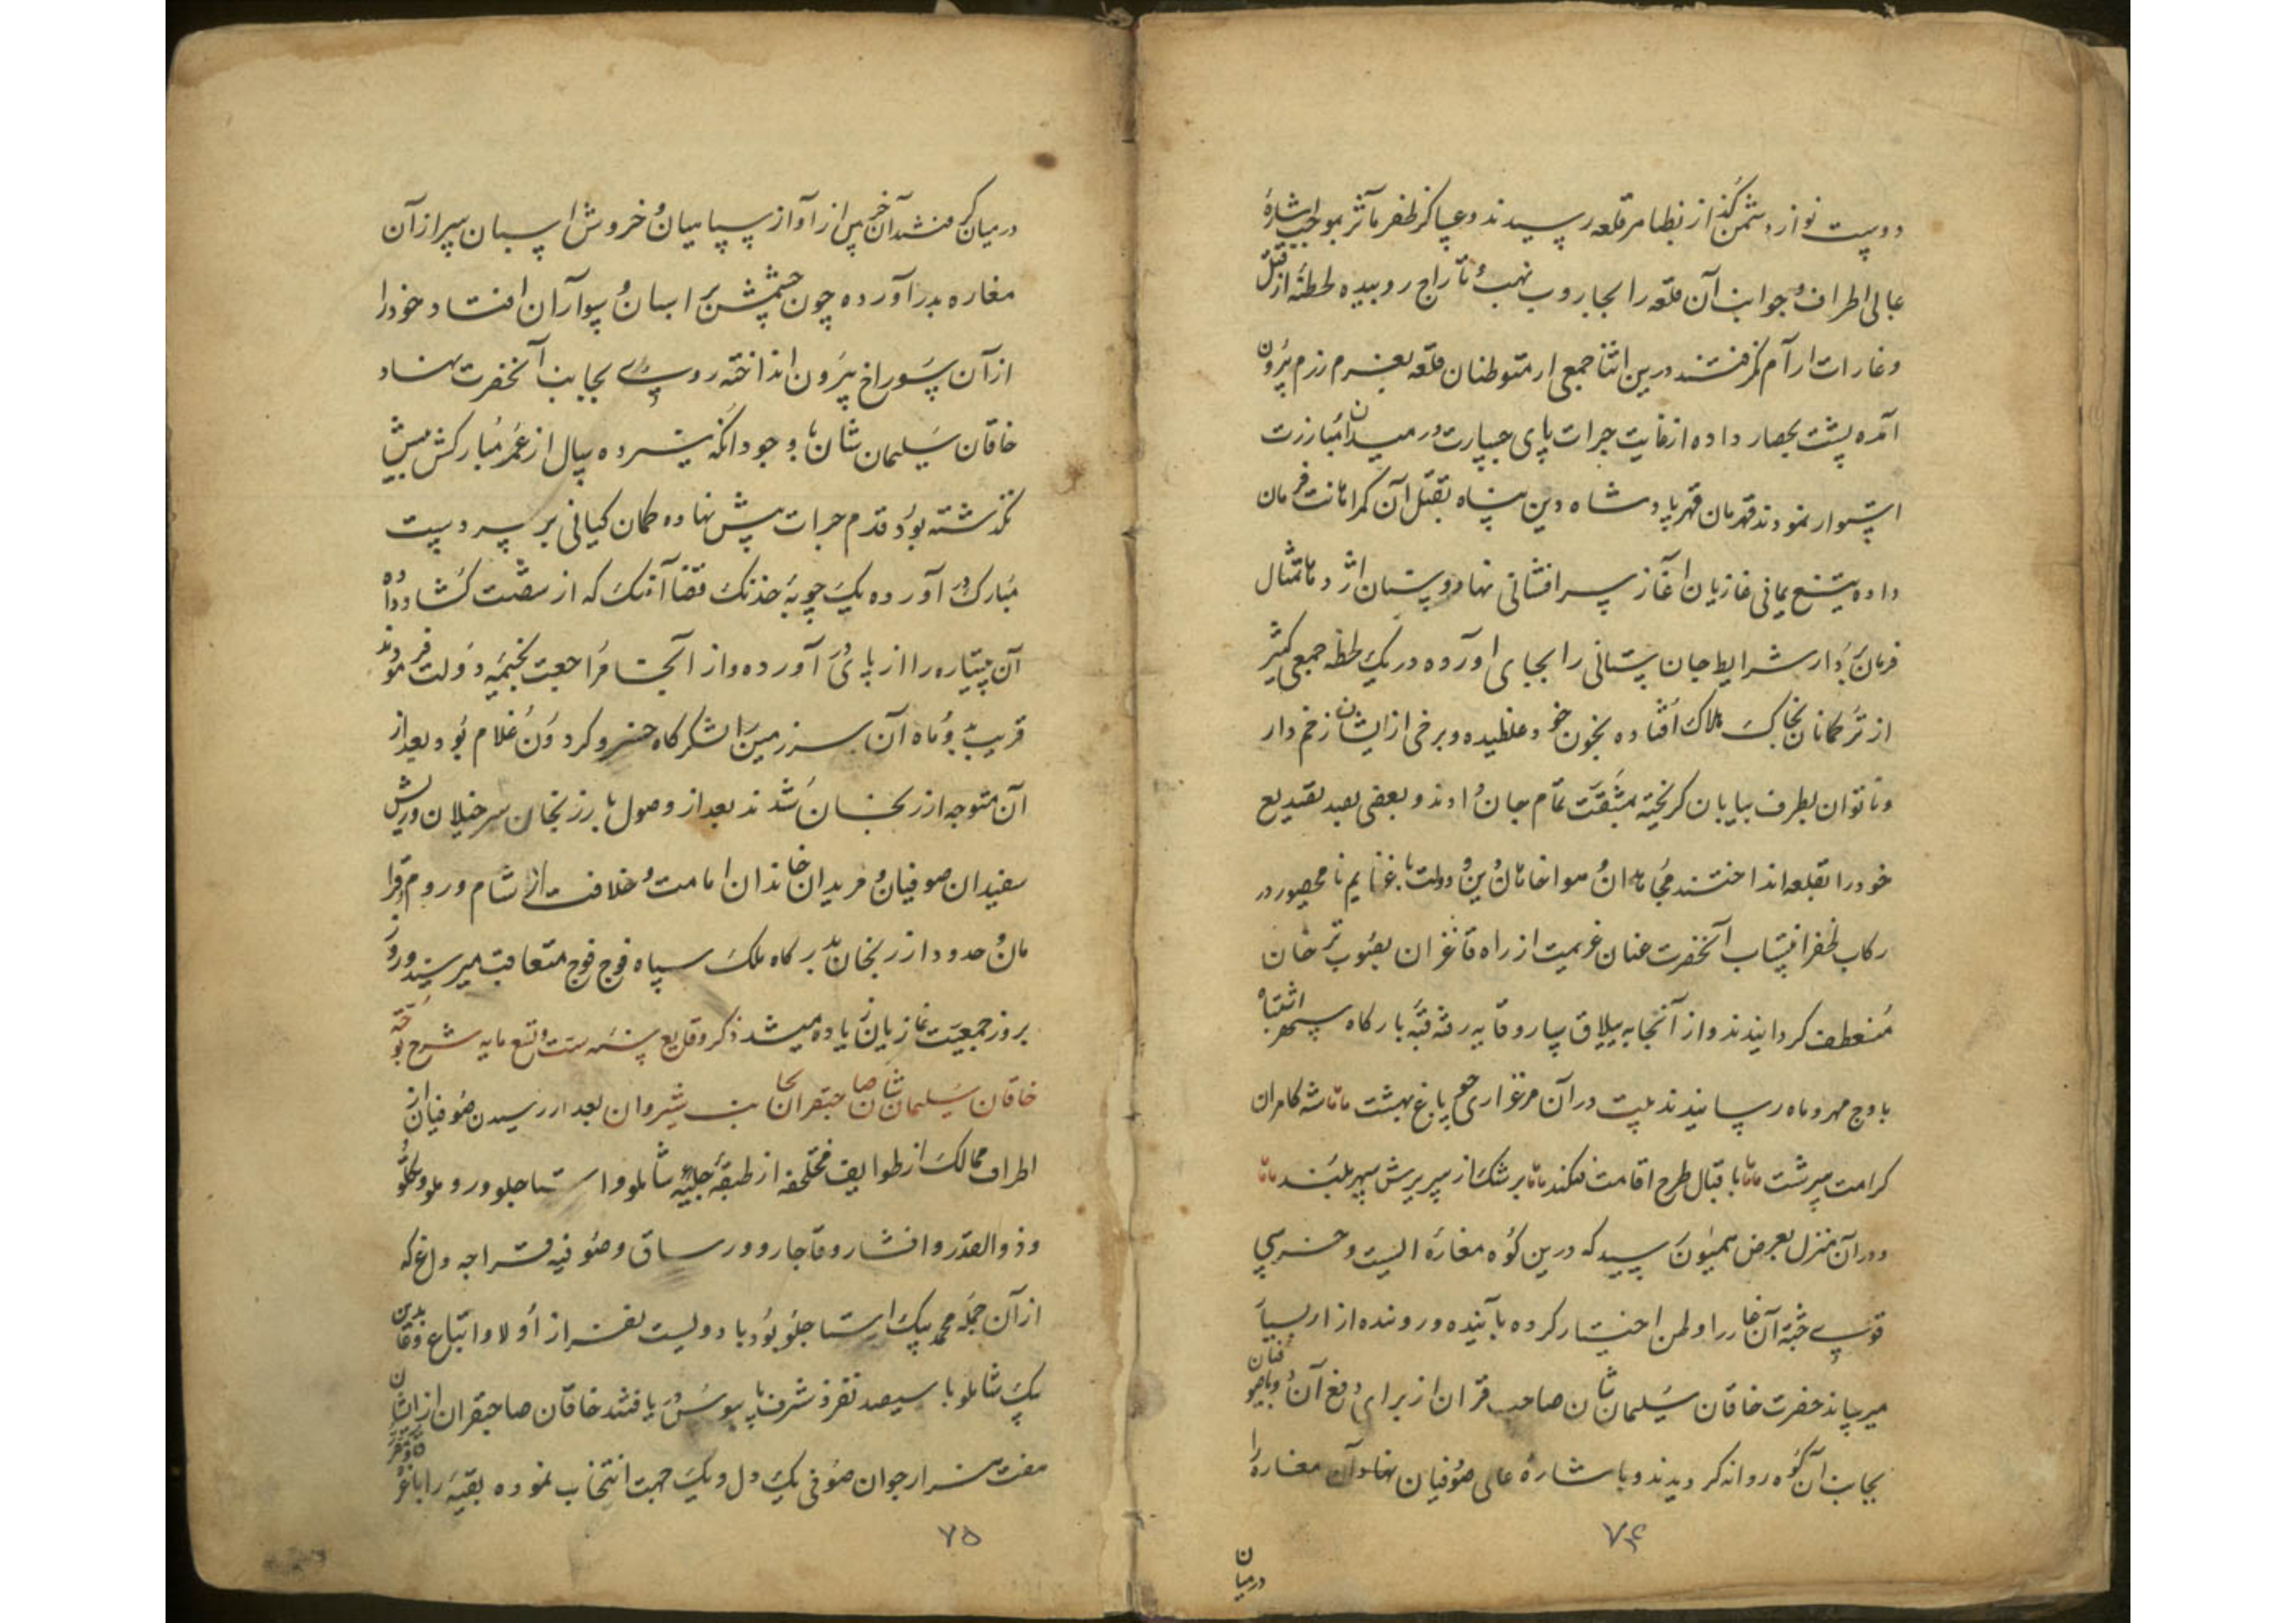 دوست نواز دشمن گداز بظاهر قلعه رسیدند و عساکر ظفر مآثر بموجب اشارهٔ
عالی اطراف و جوانب آن قلعه را بجاروب نهب و تاراج روبیده لحظهٔ از قتل
و غارات ارام نکرفتند درین اثنا جمعی از متوطنان قلعه بعزم رزم بیرون
آمده پشت بحصار داده از غایت جرات پای جسارت در میدان مبارزت
استوار نمودند قهرمان قهر پادشاه دین پناه بقتل آن کمراهان فرمان
داده بتیغ یمانی غازیان آغاز سرافشانی نهاد و سنان اژدها تمثال
فرمان بردار شرایط جان ستانی را بجای اورده در یک لحظه جمعی کثیر
از ترکمانان بخاک هلاک افتاده بخون خود غلطیده و برخی از ایشان زخم دار
و ناتوان بطرف بیابان کریخته بمشقت تمام جان دادند و بعضی بصد تصدیع
خود را بقلعه انداختند مجاهدان و هواخاهان دین و دولت با غنایم نامحصور در
رکاب ظفر انتساب آنحضرت عنان عزیمت از راه قاغزان بصوب ترجان
منعطف کردانیدند و از آنجا به ییلاق ساروقایه رفته قبهٔ بارکاه سپهر اشتباه
باوج مهر و ماه رسانیدند بیت در آن مرغزاری چو باغ بهشت شه کامران
کرامت سرشت باقبال طرح اقامت فکند برشک از سریرش سپهر بلند
و در آن منزل بعرض همیون رسید که درین کوه مغارهٔ ایست و خرسی
قوی جثه آن غار را وطن اختیار کرده بآینده و رونده ازار بسیار
میرساند حضرت خاقان سلیمان شان صاحب قران از برای دفع آن با صوفیان
بجانب آن کوه روانه کردیدند و باشارهٔ عالی صوفیان نهاد آن مغاره را
درمیان
۷۴
درمیان کرفتند آخر پس از آواز سپاهیان و خروش اسبان سر از آن
مغاره بدر آورده چون چشمش بر اسبان و سواران افتاد خود را
از آن سوراخ بیرون انداخته روی بجانب آنحضرت نهاد
خاقان سلیمان شان با وجود آنکه سیزده سال از عمر مبارکش بیش
نکذشته بود قدم جرات پیش نهاده کمان کیانی بر سر دست
مبارک در آورده بیک چوبهٔ خدنک قضا آهنک که از شصت کشاد داده
آن پتیاره را از پای در آورده و از آنجا مراجعت بخیمهٔ دولت فرمودند
قریب بدو ماه آن سرزمین لشکرکاه خسرو کردون غلام بود بعد از
آن متوجه ارزنجان شدند بعد از وصول بارزنجان سرخیلان و ریش
سفیدان صوفیان و مریدان خاندان امامت و خلافت از شام و روم و قرا
مان و حدود ارزنجان بدرکاه ملک سپاه فوج فوج متعاقب میرسیدند و روز
بروز جمعیت غازیان زیاده میشد ذکر وقایع سنه ست و تسعمایه شرح توجه
خاقان سلیمان شان صاحبقران بجانب شیروان بعد از رسیدن صوفیان از
اطراف ممالک از طوایف مختلفه از طبقهٔ جلیّه شاملو و استاجلو و روملو و تکلو
و ذوالقدر و افشار و قاجار و ورساق و صوفیه قراجه داغ که
از آن جمله محمد بیک استاجلو بود با دویست نفر از اولاد و اتباع و عابدین
بیک شاملو با سیصد نفر شرف پابوس در یافتند خاقان صاحبقران از ایشان
هفت هزار جوان صوفی یک دل و یک جهت انتخاب نموده بقیه را
۷۵